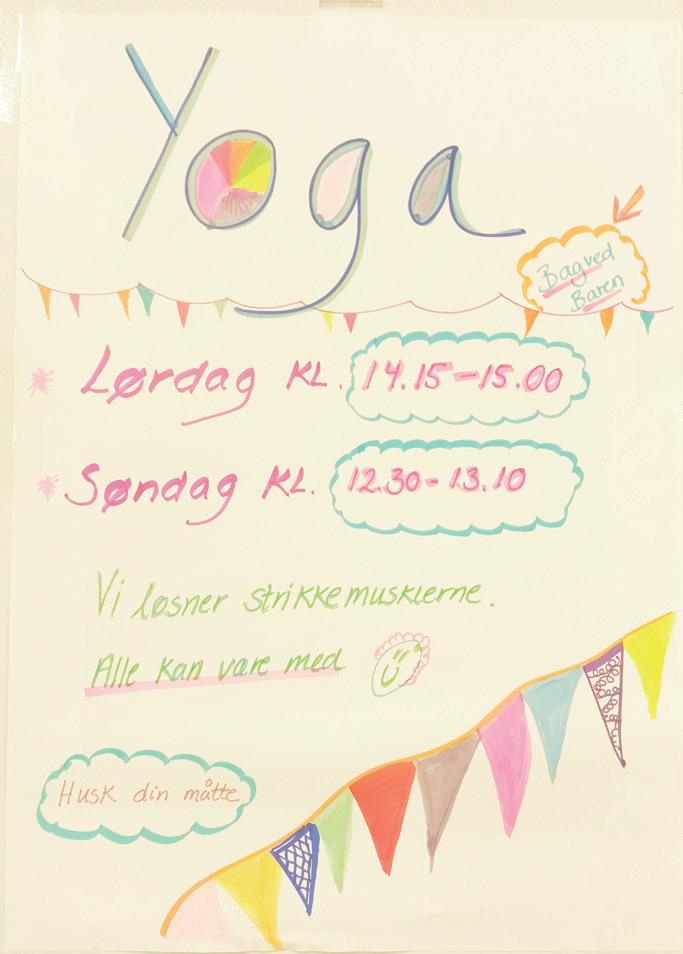 Yoga
Bagved
Baren
Lørdag KL. 14.15-15.00
Søndag KL. 12.30-13.10
Vi løsner strikkemusklerne.
Alle kan være med
Husk din måtte